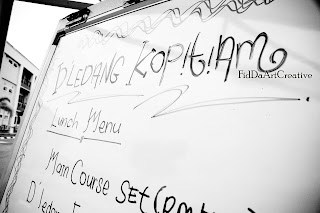 D'LEDANG KOP!T!AM
FidDaArtCreative
Lunch Menu
Main Course SET
D'ledang